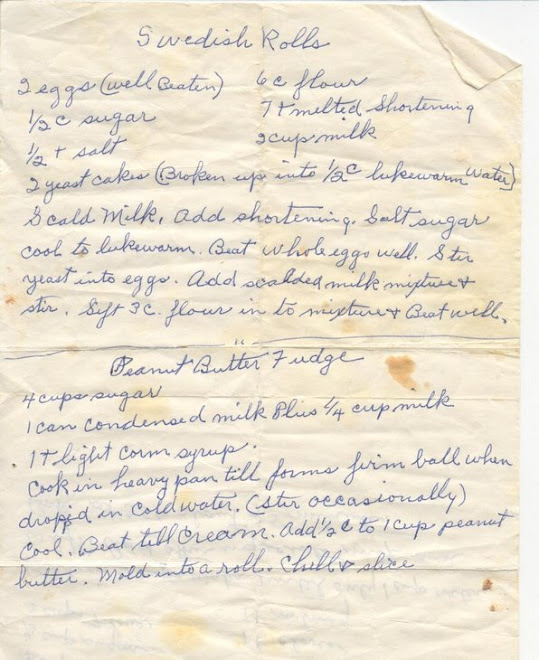 Swedish Rolls
2 eggs (well Beaten) 6 c flour
1/2 c sugar 7 t melted shortening
1/2 t salt 2 cup milk
2 yeast cakes (Broken up into 1/2 c lukewarm Water)
Scald Milk. Add shortening. Salt sugar
cool to lukewarm. Beat whole eggs well. Stir
yeast into eggs. Add scalded milk mixture &
stir. Sift 3 c. flour in to mixture & Beat well.
Peanut Butter Fudge
4 cups sugar
1 can condensed milk Plus 1/4 cup milk
1 t light corn syrup.
Cook in heavy pan till forms firm ball when
dropped in cold water. (stir occasionally)
Cool. Beat till cream. Add 1/2 c to 1 cup peanut
butter. Mold into a roll. Chill & slice